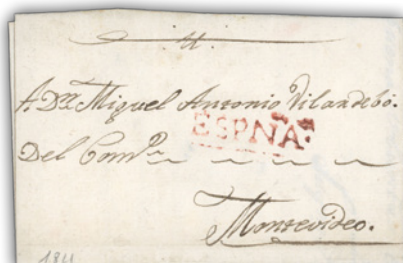 A Dn. Miguel Antonio Vilardebó.
ESPNA.
Del Comº
Montevideo.
1811